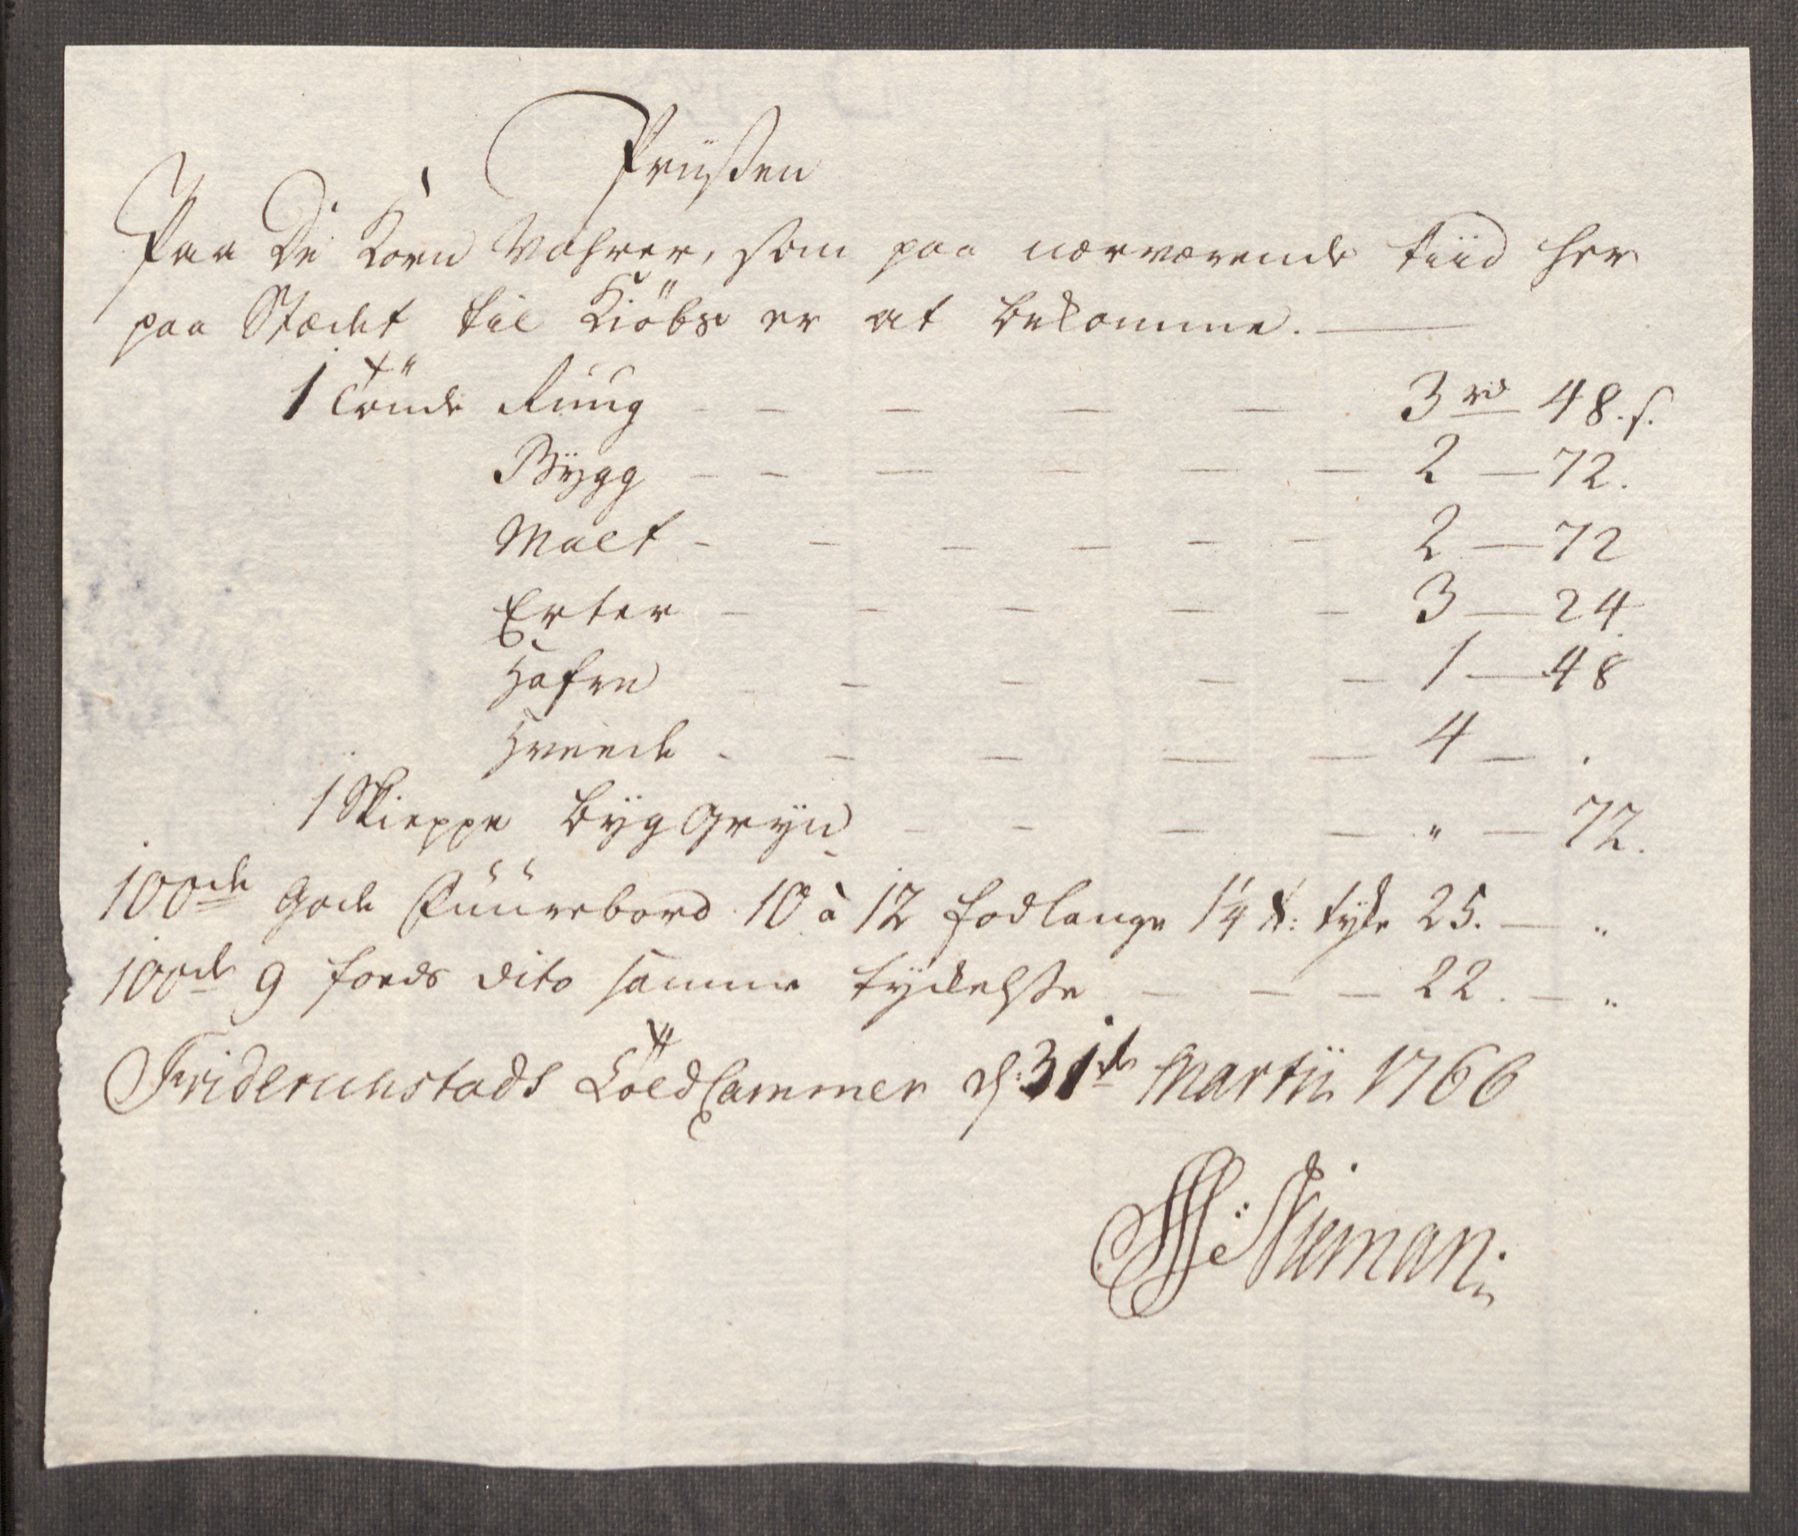 Priisen
Paa De Korn Vahrer, som paa nærværende tiid her
paa Stædet til Kiöbs er at bekomme.
1 Tönde Ruug — — — — 3 rd 48. s.
Bÿgg — — — — — — 2 — 72.
Malt — — — — — — 2 — 72
Erter — — — — — 3 — 24.
Hafre — — — — — 1 — 48
Hveede — — — — — 4 — .
1 Skieppe byg Gryn — — — — " — 72.
100de Gode Fuurebord 10 à 12 fod lange 1¼ t: tyke 25. — "
100de 9 foeds dito samme tyckelsse — — — 22. — "
Friderichstads Toldkammer d: 31te Martii 1766